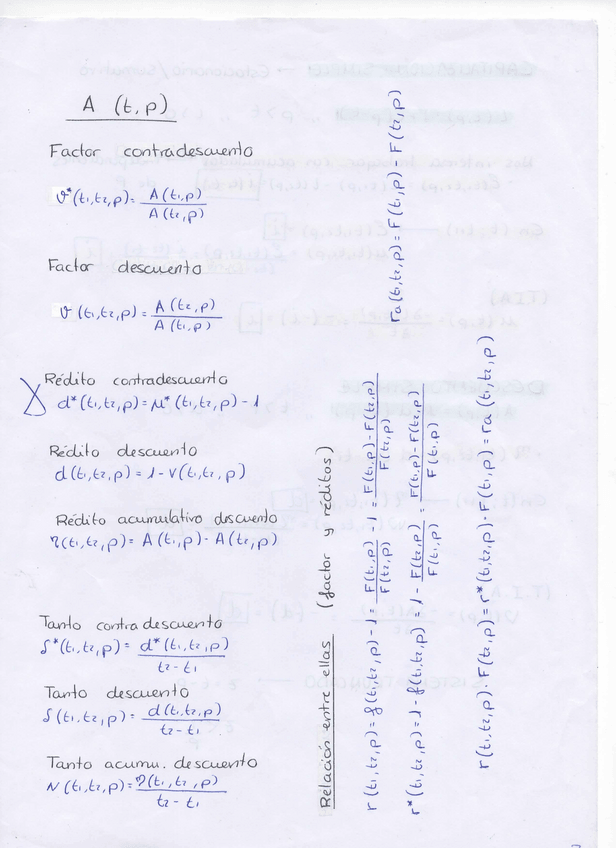 A (t,p)
Factor contradescuento
v*(t₁,t₂,p)= A(t₁,p) / A(t₂,p)
Factor descuento
v (t₁,t₂,p)= A(t₂,p) / A(t₁,p)
Rédito contradescuento
d*(t₁,t₂,p)=μ*(t₁,t₂,p) - 1
Rédito descuento
d(t₁,t₂,p)= 1 - v(t₁,t₂,p)
Rédito acumulativo descuento
η(t₁,t₂,p)= A(t₁,p) - A(t₂,p)
Tanto contra descuento
δ*(t₁,t₂,p)= d*(t₁,t₂,p) / t₂-t₁
Tanto descuento
δ(t₁,t₂,p)= d(t₁,t₂,p) / t₂-t₁
Tanto acumu. descuento
N(t₁,t₂,p)= η(t₁,t₂,p) / t₂-t₁
Relación entre ellas (factor y réditos)
r(t₁,t₂,p)= f(t₁,t₂,p) - 1 = F(t₁,p) / F(t₂,p) - 1 = F(t₁,p) - F(t₂,p) / F(t₂,p)
ra(t₁,t₂,p)= F(t₁,p) - F(t₂,p)
r*(t₁,t₂,p)= 1 - f(t₁,t₂,p) = 1 - F(t₂,p) / F(t₁,p) = F(t₁,p) - F(t₂,p) / F(t₁,p)
r(t₁,t₂,p) · F(t₂,p) = r*(t₁,t₂,p) · F(t₁,p) = ra(t₁,t₂,p)